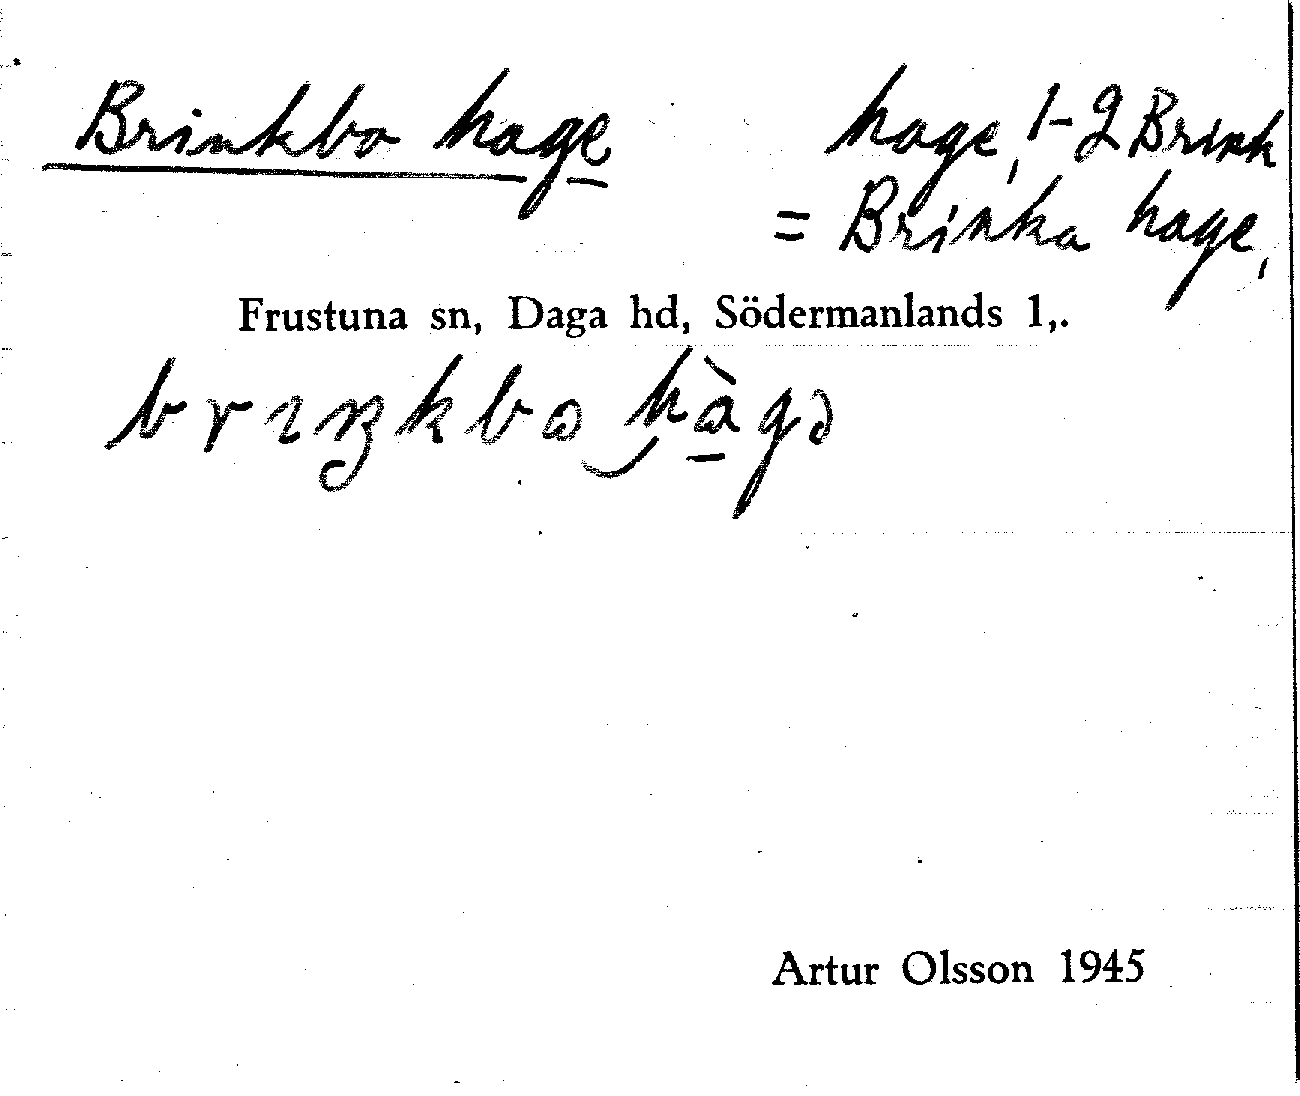 Brinkbo hage hage, 1-2 Brink
= Brinka hage,
Frustuna sn, Daga hd, Södermanlands l,.
brıŋkbɷ hàgə
Artur Olsson 1945